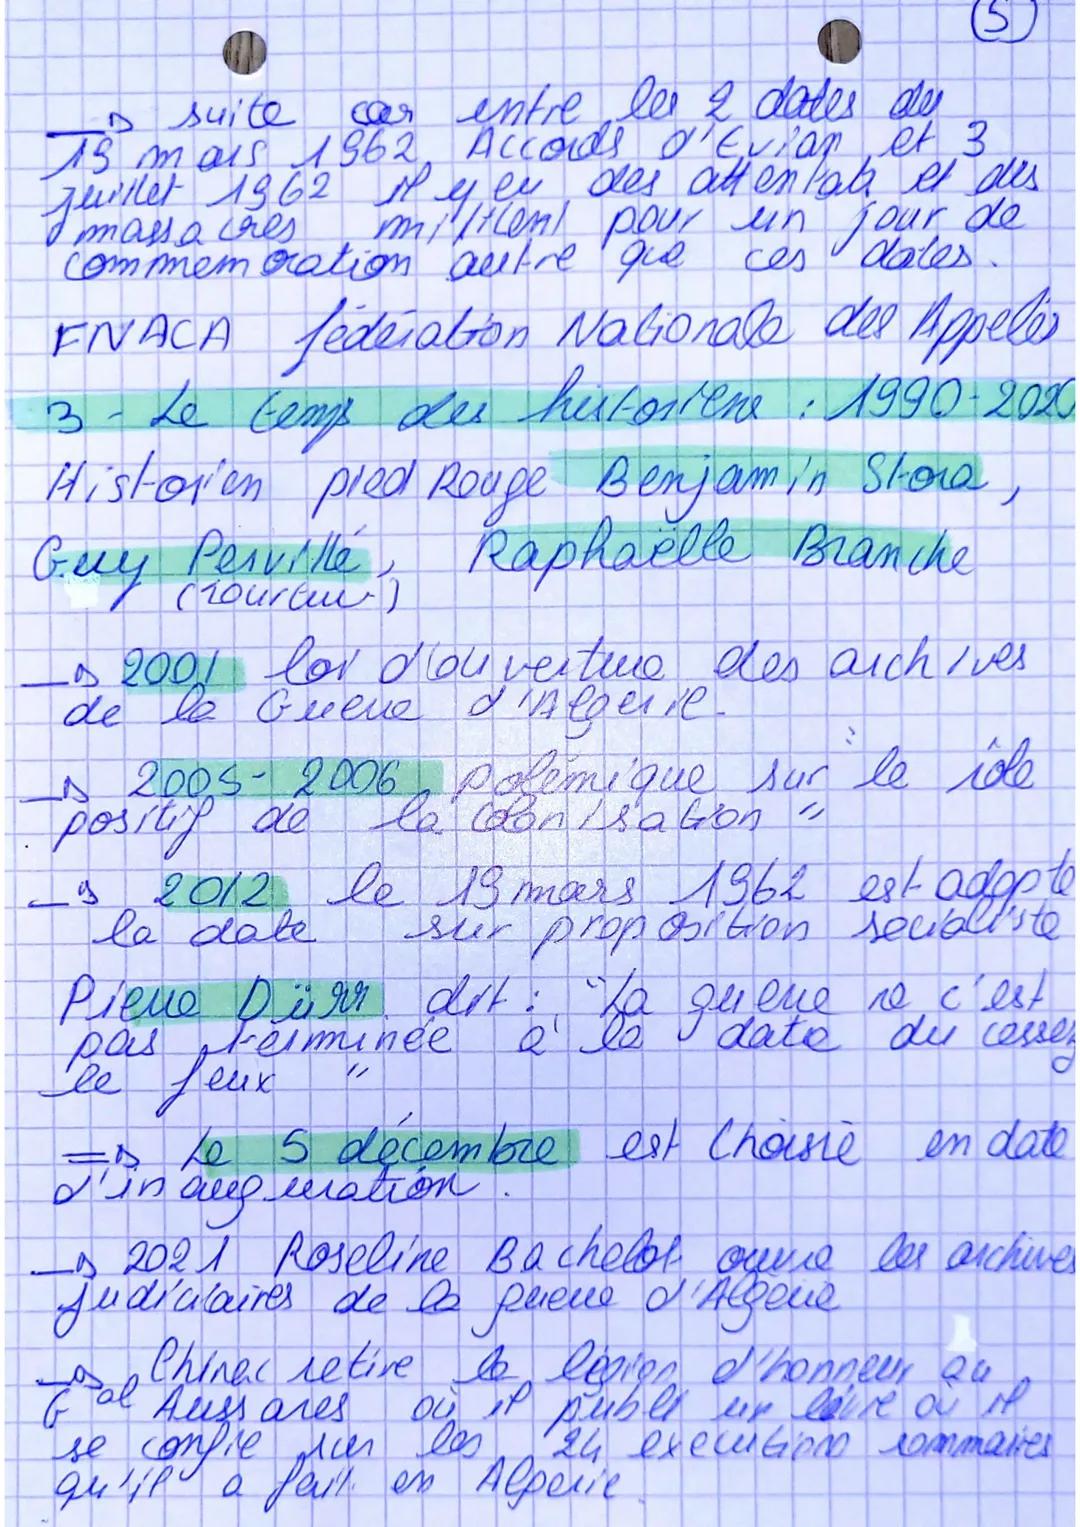 5
→ suite car entre les 2 dates du
19 mars 1962 Accords d'Evian et 3
juillet 1962 il y eu des attentats et des
massacres militent pour un jour de
commemoration autre que ces dates.
FNACA fédération Nationale des Appelés
3 - Le temps des historiens : 1990-2020
Historien pied Rouge Benjamin Stora,
Guy Pervillé, Raphaëlle Branche
→ 2001 loi d'ouverture des archives
de la Guerre d'Algerie.
→ 2005-2006 polémique sur " le rôle
positif de la colonisation "
→ 2012 le 19 mars 1962 est adopte
la date sur proposition socialiste
Pierre Dürr dit : "La guerre ne c'est
pas terminée à la date du cessez
le feux "
⇒ Le 5 décembre est Choisie en date
d'inauguration.
→ 2021 Roseline Bachelot ouvre les archives
judiciaires de la guerre d'Algérie
→ Chirac retire la légion d'honneur au
Gal Aussares où il publi un livre où il
se confie sur les 24 executions sommaires
qu'il a fait en Algerie.